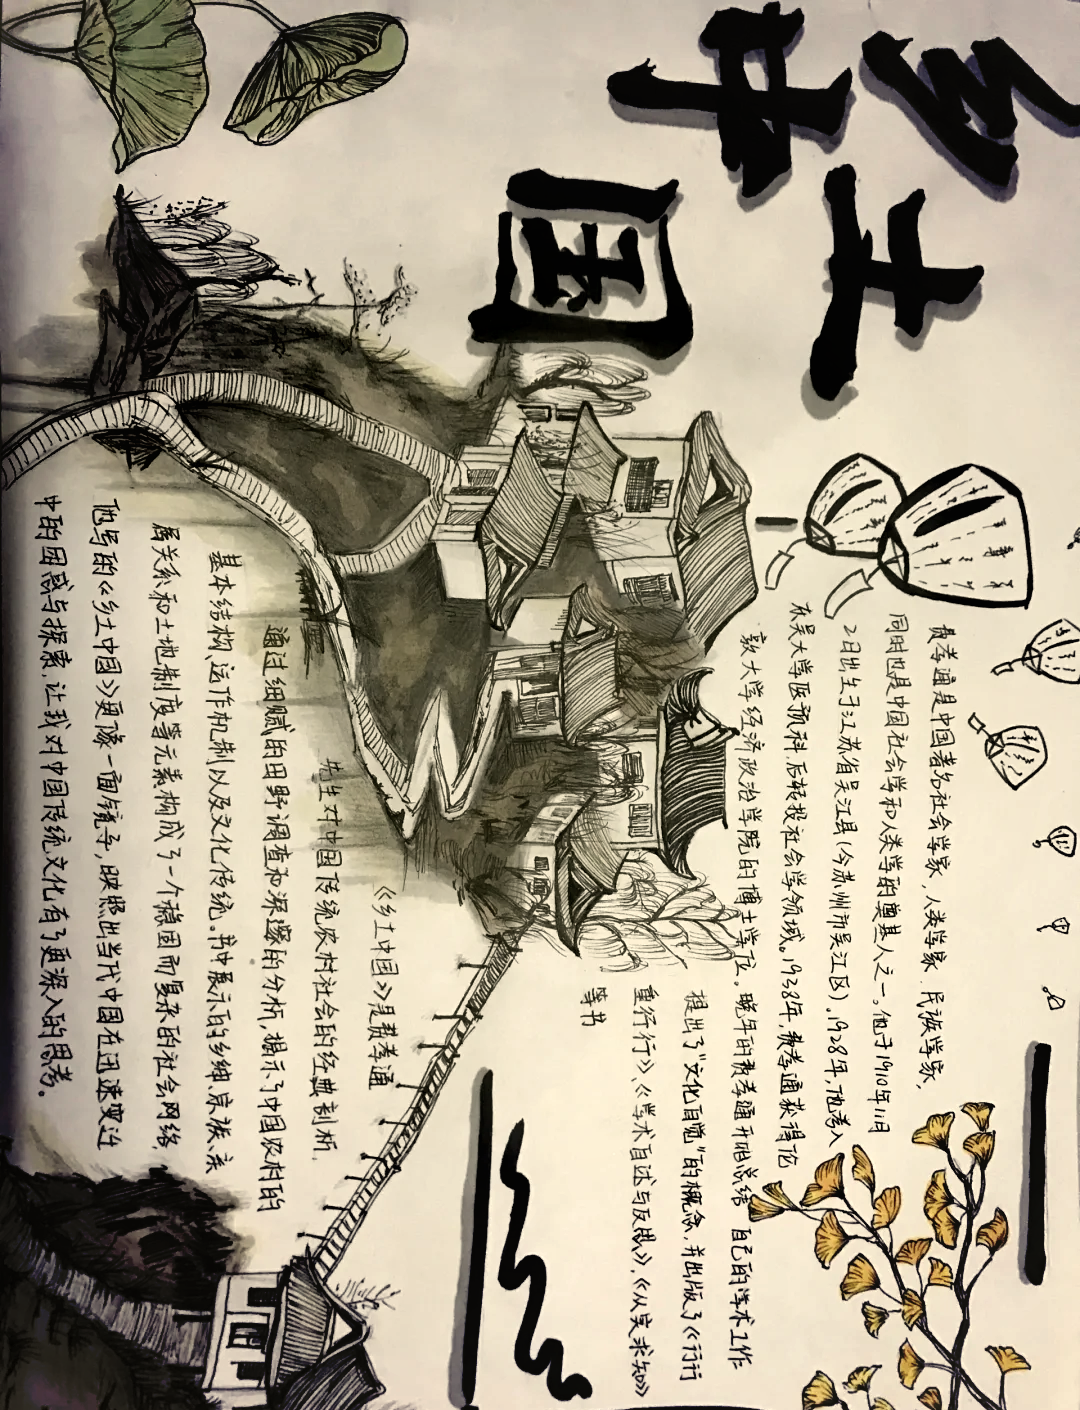 乡土中国
费孝通是中国著名社会学家,人类学家.民族学家,
同时也是中国社会学和人类学的奠基人之一。他于1910年11月
2日出生于江苏省吴江县(今苏州市吴江区),1928年,他考入
东吴大学医预科,后转投社会学领域。1938年,费孝通获得伦
敦大学经济政治学院的博士学位。晚年的费孝通开始总结 自己的学术工作
提出了“文化自觉”的概念,并出版了《行行
重行行》、《学术自述与反思》、《从实求知》
等书
《乡土中国》是费孝通
先生对中国传统农村社会的经典剖析,
通过细腻的田野调查和深邃的分析,揭示了中国农村的
基本结构、运作机制以及文化传统。书中展示的乡绅、宗族、亲
属关系和土地制度等元素构成了一个稳固而复杂的社会网络,
他写的《乡土中国》更像一面镜子,映照出当代中国在迅速变迁
中的困惑与探索,让我对中国传统文化有了更深入的思考。